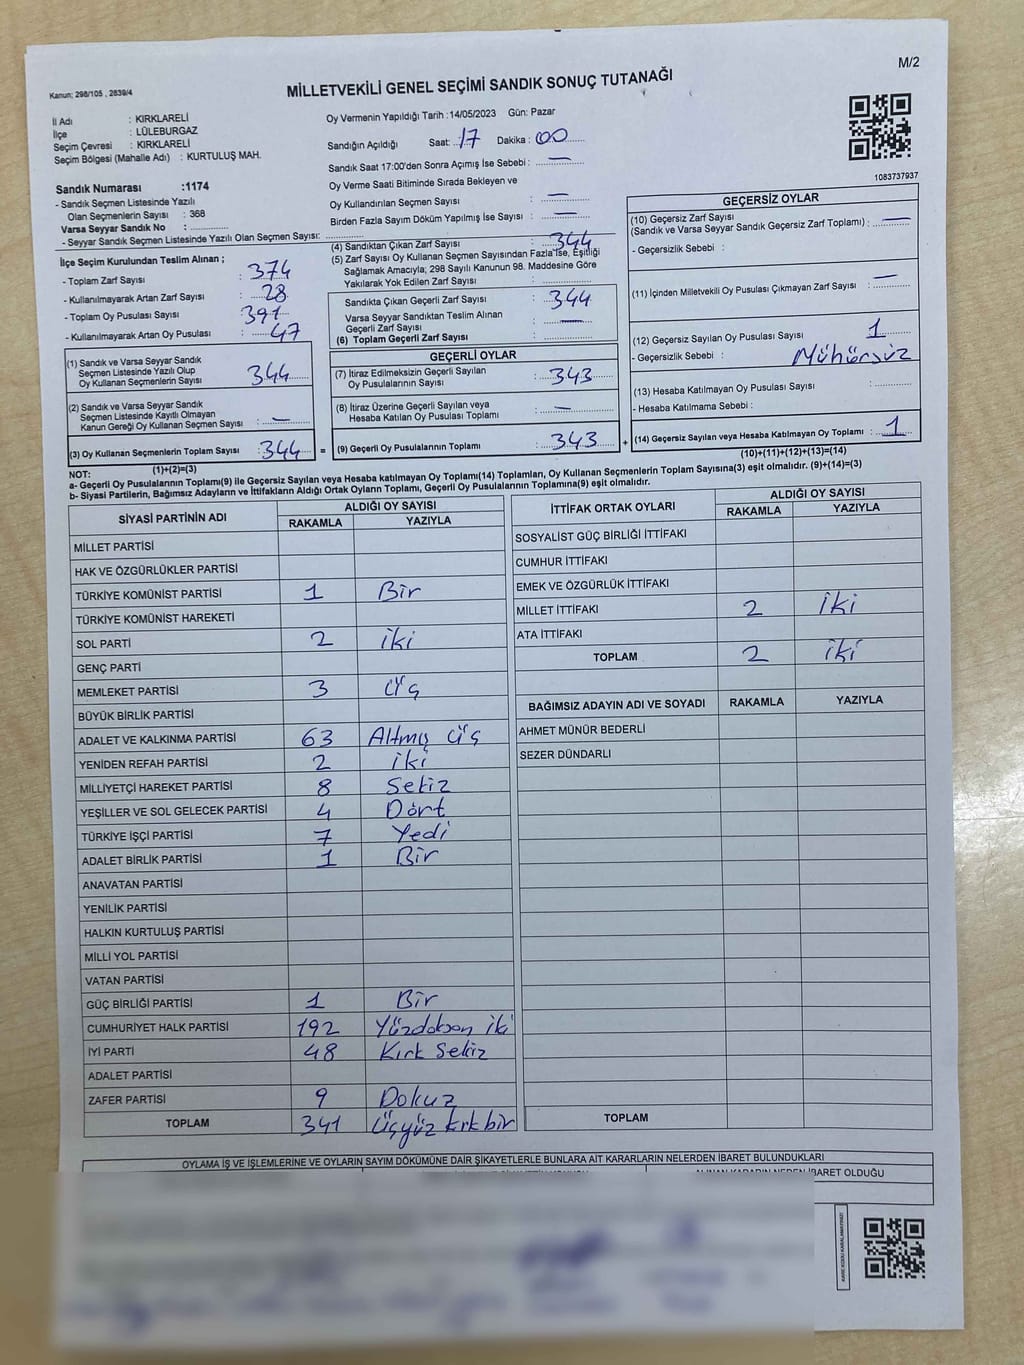 M/2
Kanun: 298/105 , 2839/4
MİLLETVEKİLİ GENEL SEÇİMİ SANDIK SONUÇ TUTANAĞI
İl Adı : KIRKLARELİ
İlçe : LÜLEBURGAZ
Seçim Çevresi : KIRKLARELİ
Seçim Bölgesi (Mahalle Adı) : KURTULUŞ MAH.
Oy Vermenin Yapıldığı Tarih :14/05/2023 Gün: Pazar
Sandığın Açıldığı Saat: 17 Dakika: 00
Sandık Saat 17:00'den Sonra Açımış İse Sebebi : —
Oy Verme Saati Bitiminde Sırada Bekleyen ve
Oy Kullandırılan Seçmen Sayısı : —
Birden Fazla Sayım Döküm Yapılmış İse Sayısı : —
1083737937
Sandık Numarası :1174
- Sandık Seçmen Listesinde Yazılı
Olan Seçmenlerin Sayısı : 368
Varsa Seyyar Sandık No :
- Seyyar Sandık Seçmen Listesinde Yazılı Olan Seçmen Sayısı:
İlçe Seçim Kurulundan Teslim Alınan ;
- Toplam Zarf Sayısı : 374
- Kullanılmayarak Artan Zarf Sayısı : 28
- Toplam Oy Pusulası Sayısı : 391
- Kullanılmayarak Artan Oy Pusulası : 47
(1) Sandık ve Varsa Seyyar Sandık
Seçmen Listesinde Yazılı Olup
Oy Kullanan Seçmenlerin Sayısı : 344
(2) Sandık ve Varsa Seyyar Sandık
Seçmen Listesinde Kayıtlı Olmayan
Kanun Gereği Oy Kullanan Seçmen Sayısı : —
(3) Oy Kullanan Seçmenlerin Toplam Sayısı : 344 =
(1)+(2)=(3)
(4) Sandıktan Çıkan Zarf Sayısı : 344
(5) Zarf Sayısı Oy Kullanan Seçmen Sayısından Fazla İse, Eşitliği
Sağlamak Amacıyla; 298 Sayılı Kanunun 98. Maddesine Göre
Yakılarak Yok Edilen Zarf Sayısı :
Sandıkta Çıkan Geçerli Zarf Sayısı : 344
Varsa Seyyar Sandıktan Teslim Alınan
Geçerli Zarf Sayısı : —
(6) Toplam Geçerli Zarf Sayısı :
GEÇERLİ OYLAR
(7) İtiraz Edilmeksizin Geçerli Sayılan
Oy Pusulalarının Sayısı : 343
(8) İtiraz Üzerine Geçerli Sayılan veya
Hesaba Katılan Oy Pusulası Toplamı : —
(9) Geçerli Oy Pusulalarının Toplamı : 343 +
GEÇERSİZ OYLAR
(10) Geçersiz Zarf Sayısı
(Sandık ve Varsa Seyyar Sandık Geçersiz Zarf Toplamı) : —
- Geçersizlik Sebebi :
(11) İçinden Milletvekili Oy Pusulası Çıkmayan Zarf Sayısı : —
(12) Geçersiz Sayılan Oy Pusulası Sayısı : 1
- Geçersizlik Sebebi : Mühürsüz
(13) Hesaba Katılmayan Oy Pusulası Sayısı :
- Hesaba Katılmama Sebebi :
(14) Geçersiz Sayılan veya Hesaba Katılmayan Oy Toplamı : 1
(10)+(11)+(12)+(13)=(14)
NOT:
a- Geçerli Oy Pusulalarının Toplamı(9) ile Geçersiz Sayılan veya Hesaba katılmayan Oy Toplamı(14) Toplamları, Oy Kullanan Seçmenlerin Toplam Sayısına(3) eşit olmalıdır. (9)+(14)=(3)
b- Siyasi Partilerin, Bağımsız Adayların ve İttifakların Aldığı Ortak Oyların Toplamı, Geçerli Oy Pusulalarının Toplamına(9) eşit olmalıdır.
SİYASİ PARTİNİN ADI ALDIĞI OY SAYISI
RAKAMLA YAZIYLA
MİLLET PARTİSİ
HAK VE ÖZGÜRLÜKLER PARTİSİ
TÜRKİYE KOMÜNİST PARTİSİ 1 Bir
TÜRKİYE KOMÜNİST HAREKETİ
SOL PARTİ 2 iki
GENÇ PARTİ
MEMLEKET PARTİSİ 3 üç
BÜYÜK BİRLİK PARTİSİ
ADALET VE KALKINMA PARTİSİ 63 Altmış üç
YENİDEN REFAH PARTİSİ 2 iki
MİLLİYETÇİ HAREKET PARTİSİ 8 Sekiz
YEŞİLLER VE SOL GELECEK PARTİSİ 4 Dört
TÜRKİYE İŞÇİ PARTİSİ 7 Yedi
ADALET BİRLİK PARTİSİ 1 Bir
ANAVATAN PARTİSİ
YENİLİK PARTİSİ
HALKIN KURTULUŞ PARTİSİ
MİLLİ YOL PARTİSİ
VATAN PARTİSİ
GÜÇ BİRLİĞİ PARTİSİ 1 Bir
CUMHURİYET HALK PARTİSİ 192 Yüzdokson iki
İYİ PARTİ 48 Kırk Sekiz
ADALET PARTİSİ
ZAFER PARTİSİ 9 Dokuz
TOPLAM 341 Üçyüz kırk bir
İTTİFAK ORTAK OYLARI ALDIĞI OY SAYISI
RAKAMLA YAZIYLA
SOSYALİST GÜÇ BİRLİĞİ İTTİFAKI
CUMHUR İTTİFAKI
EMEK VE ÖZGÜRLÜK İTTİFAKI
MİLLET İTTİFAKI 2 iki
ATA İTTİFAKI
TOPLAM 2 iki
BAĞIMSIZ ADAYIN ADI VE SOYADI RAKAMLA YAZIYLA
AHMET MÜNÜR BEDERLİ
SEZER DÜNDARLI
TOPLAM
OYLAMA İŞ VE İŞLEMLERİNE VE OYLARIN SAYIM DÖKÜMÜNE DAİR ŞİKAYETLERLE BUNLARA AİT KARARLARIN NELERDEN İBARET BULUNDUKLARI
ALINAN KARARIN NEDEN İBARET OLDUĞU